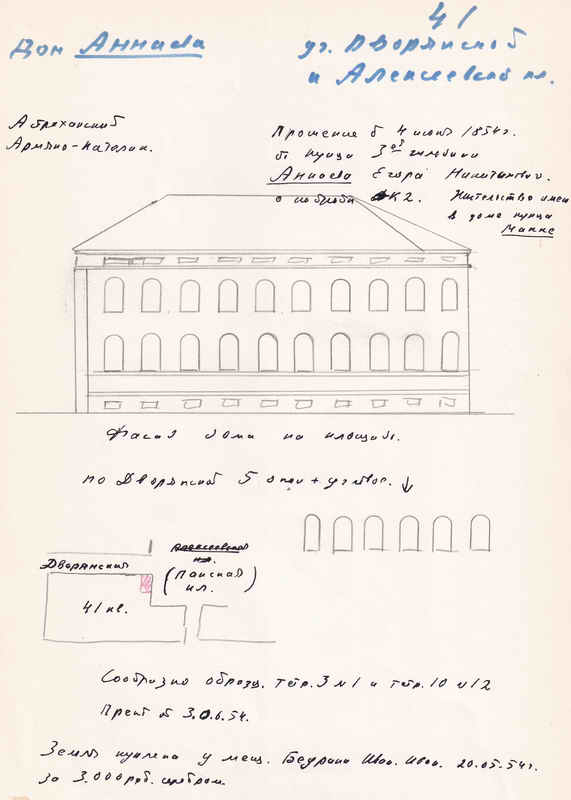 41
Дом Аннаева
уг. Дворянской
и Алексеевской пл.
Астраханский
Армяно-католик.
Прошение 4 июня 1854г.
купца 3ой гильдии
Аннаева Егора Никитичева.
о постройке К2. Жительство имеет
в доме купца
Фасад дома на площадь.
по Дворянской 5 окон + угловое. ↓
Дворянская
Алексеевская
пл.
(Панская
пл.)
41 кв.
Сообразно образц. тетр. 3 №1 и тетр. 10 №12
Проект 30.6.54.
Земля куплена у мещ. Иван. Иван. 20.05.54г.
за 3.000 руб. серебром.